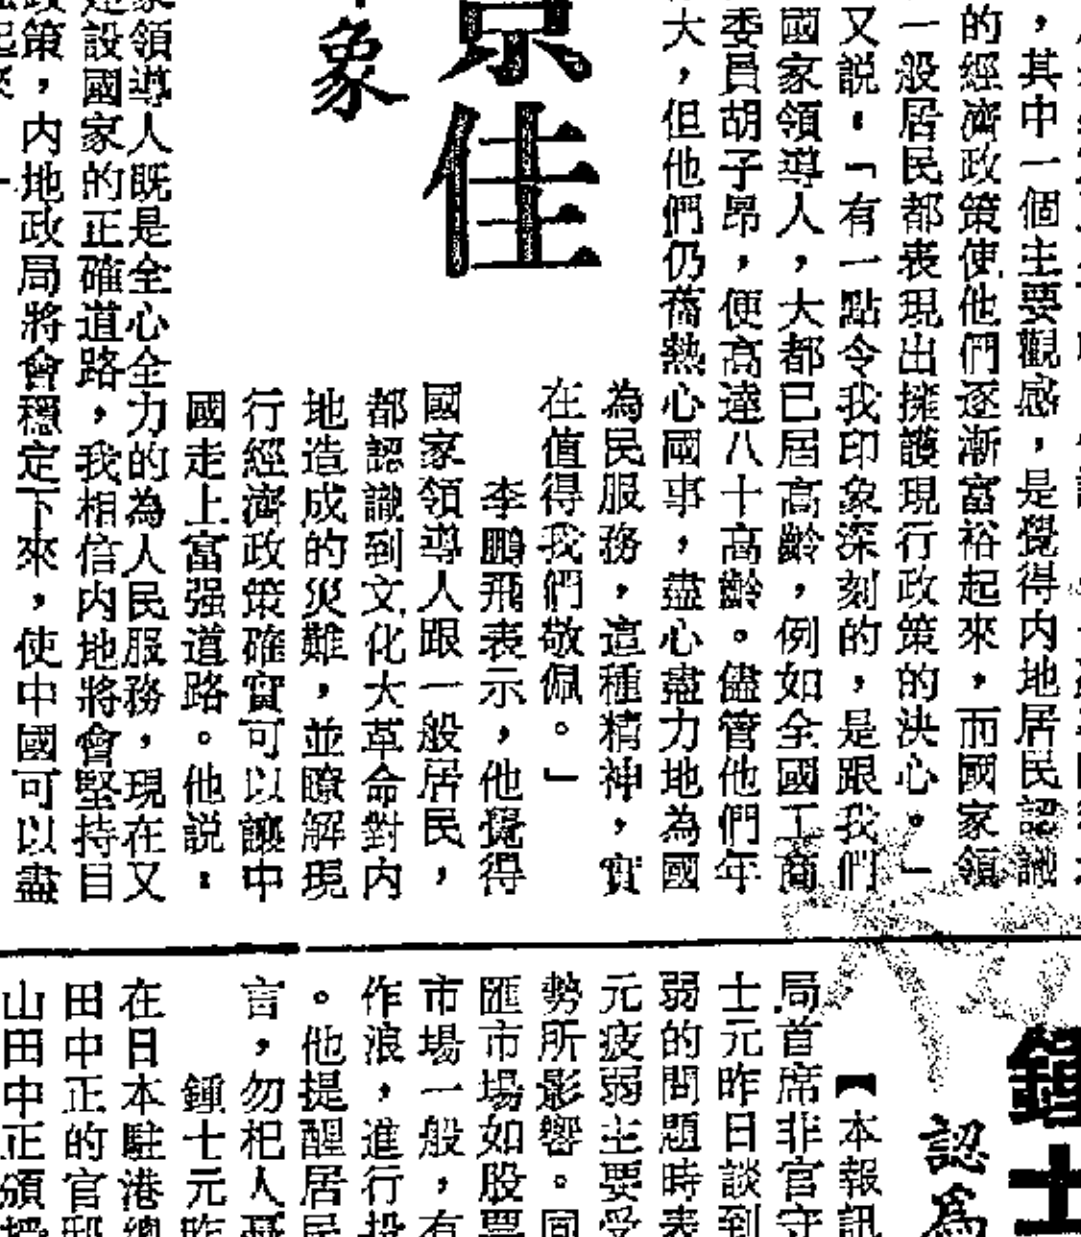 ，其中一個主要觀感，是覺得內地居民認識
的經濟政策使他們逐漸富裕起來，而國家領
一般居民都表現出擁護現行政策的決心。」
又說：「有一點令我印象深刻的，是跟我們
國家領導人，大都已居高齡，例如全國工商
委員胡子昂，便高達八十高齡。儘管他們年
大，但他們仍舊熱心國事，盡心盡力地為國
為民服務，這種精神，實
在值得我們敬佩。」
李鵬飛表示，他覺得
國家領導人跟一般居民，
都認識到文化大革命對內
地造成的災難，並瞭解現
行經濟政策確實可以讓中
國走上富强道路。他說：
景佳
象
家領導人既是全心全力的為人民服務，現在又
建設國家的正確道路，我相信內地將會堅持目
政策，內地政局將會穩定下來，使中國可以盡
起來
鍾士
認為
【本報訊
局首席非官守
士元昨日談到
弱的問題時表
元疲弱主要受
勢所影響。同
匯市場如股票
市場一般，有
作浪，進行投
。他提醒居民
言，勿杞人憂
鍾士元昨
在日本駐港總
田中正的官邸
山田中正頒授